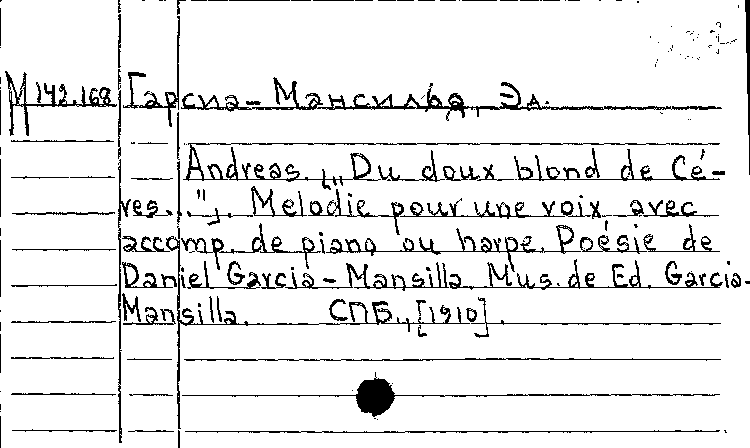 М 142.168 Гарсиа-Мансилья, Эд.
Andreas. [„Du doux blond de Cé-
res..."]. Melodie pour une voix avec
accomp. de piano ou harpe. Poésie de
Daniel Garcia-Mansilla. Mus. de Ed. Garcia-
Mansilla. СПБ., [1910].